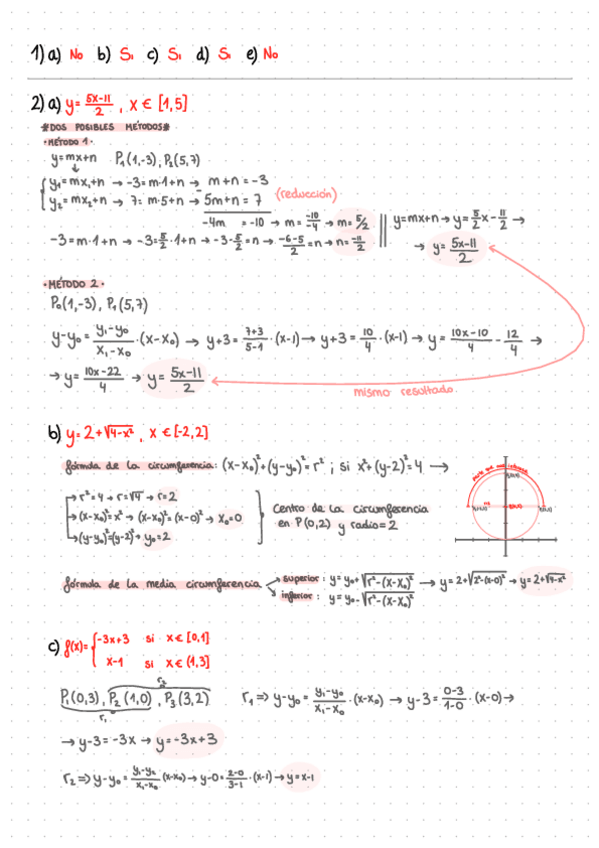 1) a) No b) Si c) Si d) Si e) No
2) a) y = (5x-11)/2 , x ∈ [1,5]
*DOS POSIBLES MÉTODOS*
·MÉTODO 1·
y = mx+n P₁(1,-3), P₂(5,7)
y₁ = mx₁+n → -3 = m·1+n → m+n = -3
y₂ = mx₂+n → 7 = m·5+n → 5m+n = 7 (reducción)
-4m = -10 → m = -10/-4 → m = 5/2 || y = mx+n → y = 5/2 x - 11/2 →
-3 = m·1+n → -3 = 5/2·1+n → -3-5/2 = n → (-6-5)/2 = n → n = -11/2 → y = (5x-11)/2
·MÉTODO 2·
P₀(1,-3), P₁(5,7)
y-y₀ = (y₁-y₀)/(x₁-x₀) · (x-x₀) → y+3 = (7+3)/(5-1) · (x-1) → y+3 = 10/4 · (x-1) → y = (10x-10)/4 - 12/4 →
→ y = (10x-22)/4 → y = (5x-11)/2
mismo resultado.
b) y = 2+√(4-x²) , x ∈ [-2,2]
fórmula de la circumferencia: (x-x₀)²+(y-y₀)² = r² ; si x²+(y-2)² = 4 →
→ r² = 4 → r = √4 → r = 2
→ (x-x₀)² = x² → (x-x₀)² = (x-0)² → x₀ = 0
→ (y-y₀)² = (y-2)² → y₀ = 2
Centro de la circumferencia
en P(0,2) y radio = 2
fórmula de la media circumferencia
superior: y = y₀+√(r²-(x-x₀)²) → y = 2+√(2²-(x-0)²) → y = 2+√(4-x²)
inferior: y = y₀-√(r²-(x-x₀)²)
c) f(x) = { -3x+3 si x ∈ [0,1]
x-1 si x ∈ (1,3]
r₂
P₁(0,3), P₂(1,0), P₃(3,2) r₁ ⇒ y-y₀ = (y₁-y₀)/(x₁-x₀) · (x-x₀) → y-3 = (0-3)/(1-0) · (x-0) →
r₁
→ y-3 = -3x → y = -3x+3
r₂ ⇒ y-y₀ = (y₁-y₀)/(x₁-x₀) (x-x₀) → y-0 = (2-0)/(3-1) · (x-1) → y = x-1